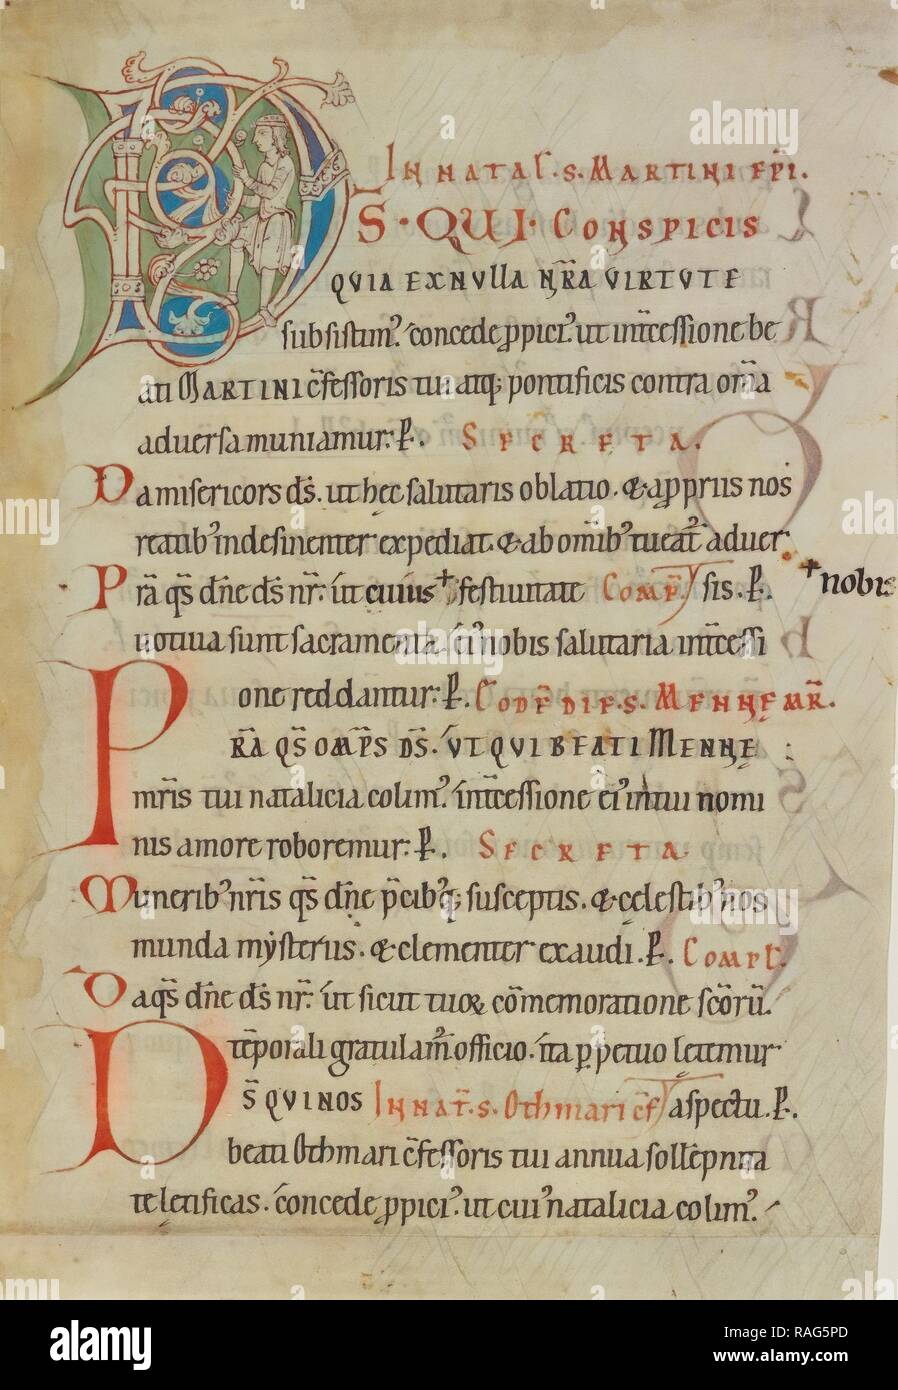 IN NATAL̄. S. MARTINI EP̄I.
DS. QUI. CONSPICIS
QVIA EX NVLLA NR̄A VIRTVTE
subsistim᾿. c̄oncede ꝓpici᾿. ut int̄cessione be
ati MARTINI c̄fessoris tui atq; pontificis contra om̄ia
aduersa muniamur. ꝑ. SECRETA.
Da misericors d̄s. ut hęc salutaris oblatio. & a ꝓpriis nos
reatib᾿ indesinenter expediat. & ab om̄ib᾿ tueat᾿ aduer
Pr̄a q̄s dn̄e d̄s nr̄. ut cuius festiuitate COMP̄. sis. ꝑ. +nobis
uotiua sunt sacramenta. ei᾿ nobis salutaria int̄cessi
one reddantur. ꝑ. EODĒ DIE. S. MENNE MR̄.
PR̄A Q̄S OMP̄S D̄S. VT QVI BEATI MENNE
mr̄is tui natalicia colim᾿. int̄cessione ei᾿ in tui nomi
nis amore roboremur. ꝑ. SECRETA
Munerib᾿ nr̄is q̄s dn̄e p̄cib᾿q; susceptis. & cęlestib᾿ nos
munda mysteriis. & clementer exaudi. ꝑ. COMPL̄.
Da q̄s dn̄e d̄s nr̄. ut sicut tuoꝝ cōmemoratione sc̄orū.
tēporali gratulam᾿ officio. ita ꝑpetuo lętemur
DS̄ QVI NOS IN NAT̄. S. Othmari c̄f aspectu. ꝑ.
beati Othmari c̄fessoris tui annua sollēpnita
te lętificas. c̄oncede ꝓpici᾿. ut cui᾿ natalicia colim᾿.
alamy
Image ID: RAG5PD
www.alamy.com